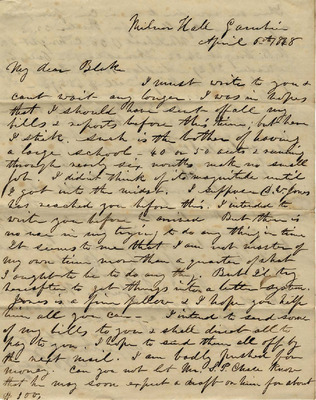 Milnor Hall Gambier
April 5th 1848
My dear Blake
I must write to you &
can't wait any longer. I was in hopes
that I should have sent off all my
bills & reports before this time, but here
I stick. Such is the bother of having
a large school. 40 or 50 acts & running
through nearly six months make no small
job. I didn't think of its magnitude until
I got into the midst. I suppose Jones
has reached you before this. I intended to
write you before he arrived But there is
no use in my trying to do any thing in time
It seems to me that I am not master of
my own time more than a quarter of what
I ought to be to do any thing. But I'll try
hereafter to get things into a better system.
Jones is a fine fellow & I hope you help
him all you can — I intend to send some
of my bills to you & shall direct all to
pay to you. I hope to send them all off by
the next mail. I am badly pushed for
money. Can you not let Mr. S P Chase know
that he may soon expect a draft on him for about
$100.